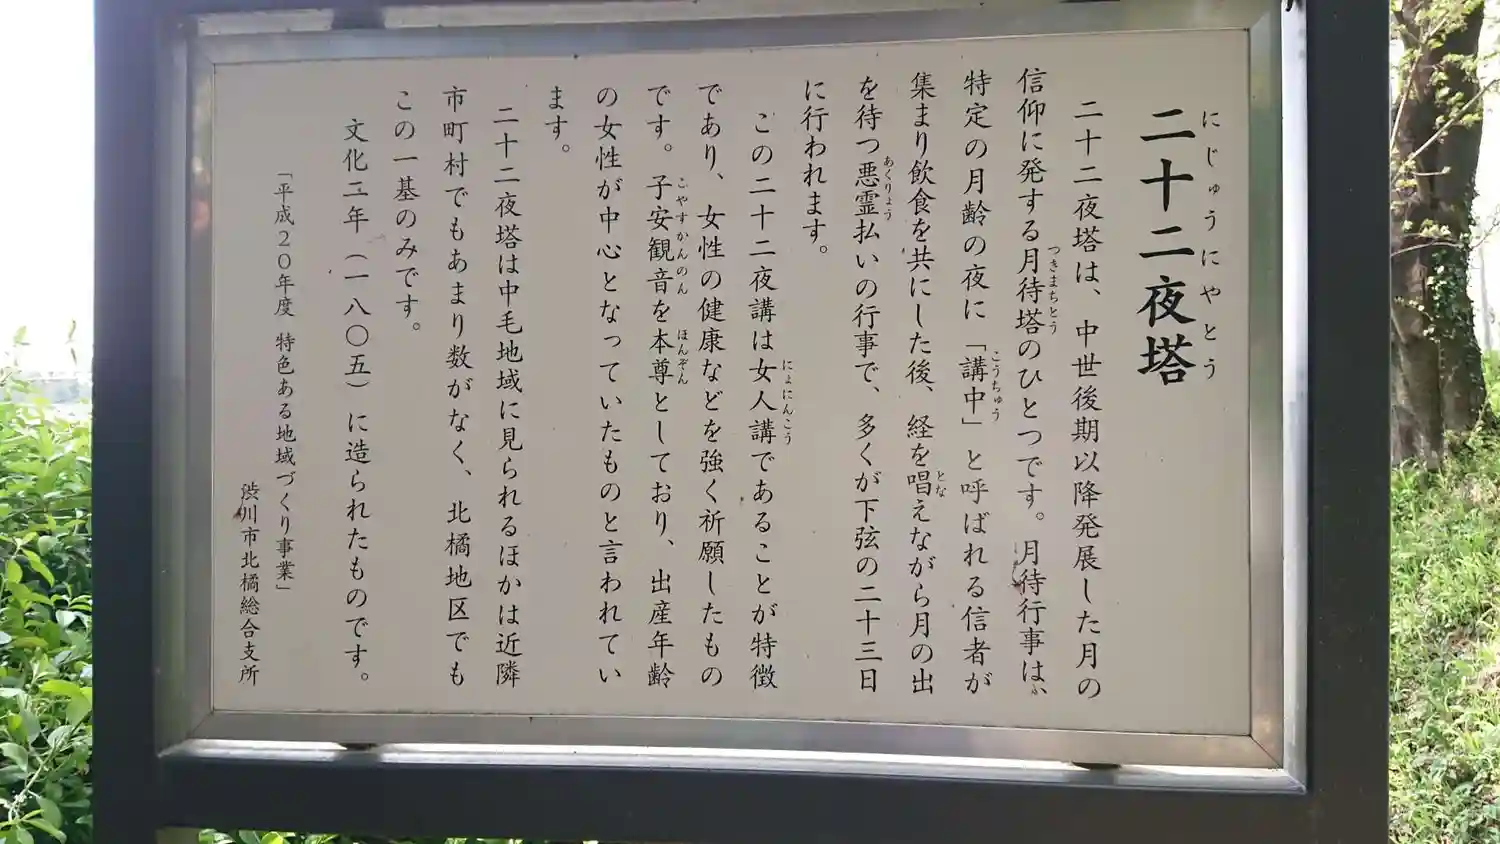 二十二夜塔
にじゅうにやとう
二十二夜塔は、中世後期以降発展した月の
信仰に発する月待塔のひとつです。月待行事は、
つきまちとう
特定の月齢の夜に「講中」と呼ばれる信者が
こうちゅう
集まり飲食を共にした後、経を唱えながら月の出
とな
を待つ悪霊払いの行事で、多くが下弦の二十三日
あくりょう
に行われます。
この二十二夜講は女人講であることが特徴
にょにんこう
であり、女性の健康などを強く祈願したもの
です。子安観音を本尊としており、出産年齢
こやすかんのん
ほんぞん
の女性が中心となっていたものと言われてい
ます。
二十二夜塔は中毛地域に見られるほかは近隣
市町村でもあまり数がなく、北橘地区でも
この一基のみです。
文化二年（一八〇五）に造られたものです。
「平成20年度 特色ある地域づくり事業」
渋川市北橘総合支所